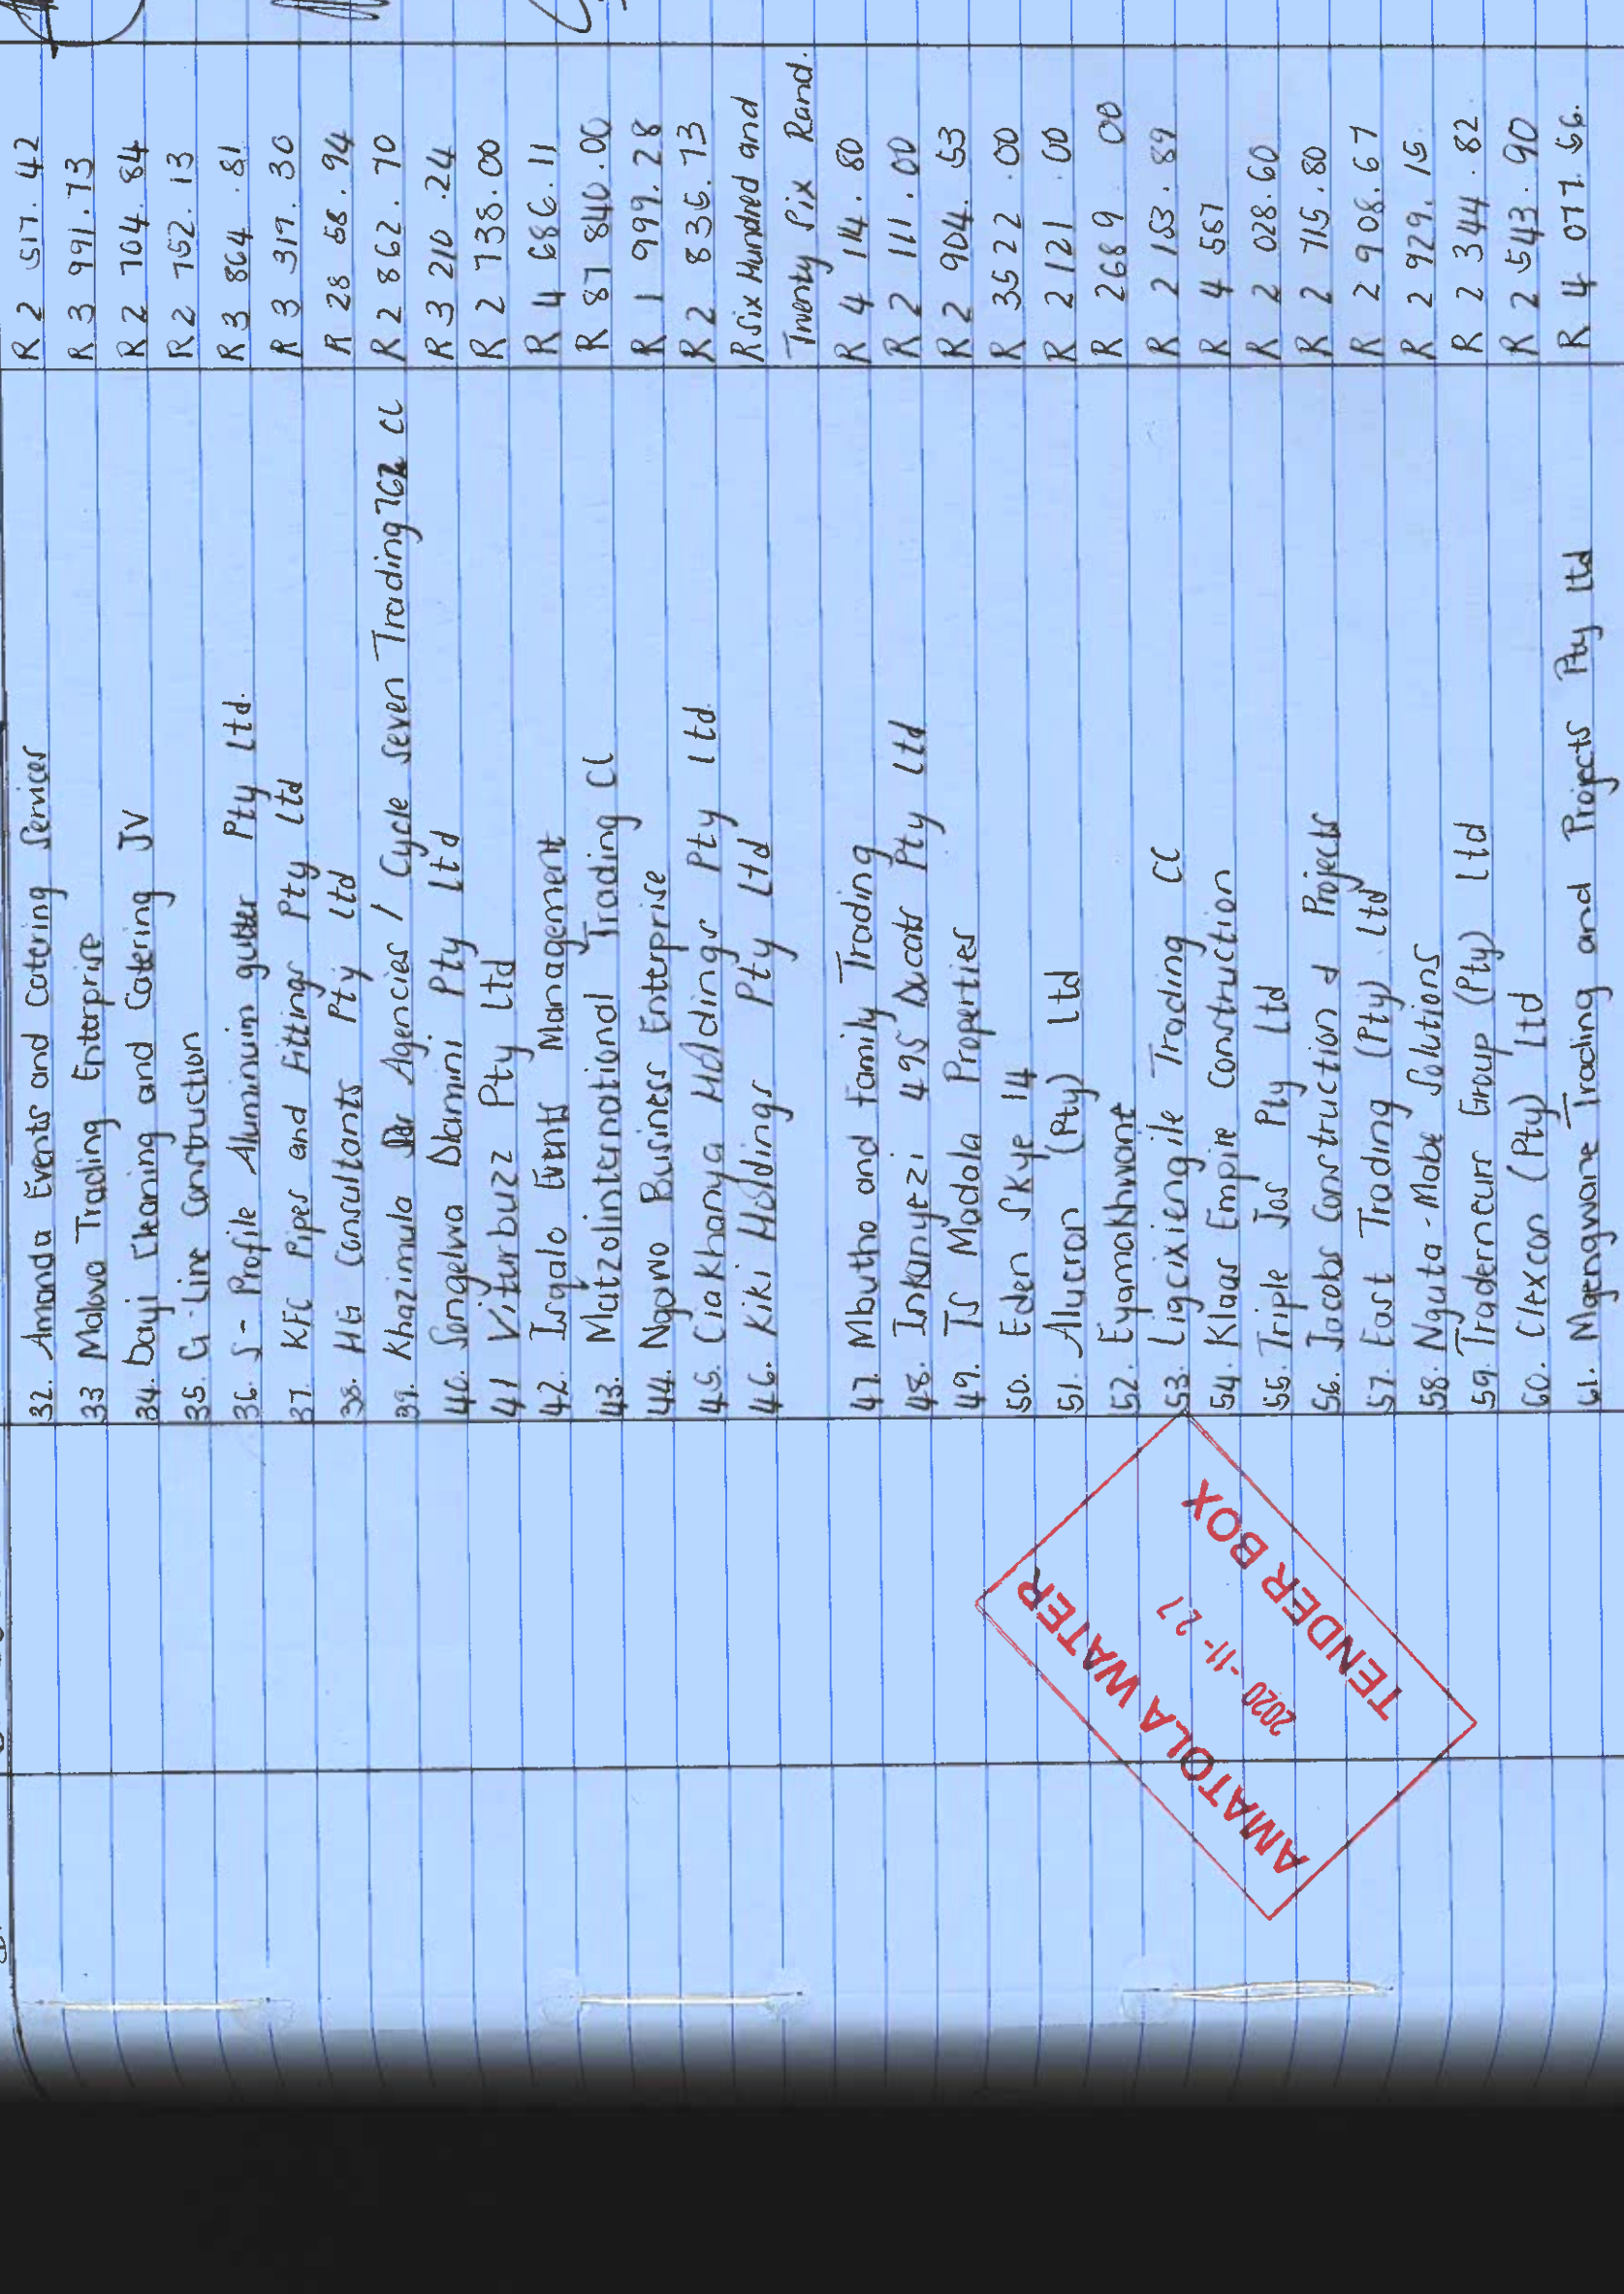 32. Amanda Events and Catering Services R 2 517.42
33 Malova Trading Enterprise R 3 991.73
34. Dayi Cleaning and Catering JV R 2 704.84
35. G-Line Construction R 2 752.13
36. S-Profile Aluminuim gutter Pty Ltd. R 3 864.81
37. KFC Pipes and Fittings Pty Ltd R 3 319.30
38. HG Consultants Pty Ltd R 28 58.94
39. Khazimula Agencies / Cycle Seven Trading CC R 2 862.70
40. Songelwa Dlamini Pty Ltd R 3 210.24
41 Viturbuzz Pty Ltd R 2 738.00
42. Isqalo Events Management R 4 686.11
43. Matzolinternational Trading CC R 87 840.00
44. Ngowo Business Enterprise R 1 999.28
45. Ciakhanya Holdings Pty Ltd. R 2 836.73
46. Kiki Holdings Pty Ltd R Six Hundred and
Twenty Six Rand.
47. Mbutho and Family Trading R 4 114.80
48. Inkanyezi 495 Ducats Pty Ltd R 2 111.00
49. TS Madala Properties R 2 904.53
50. Eden Skye 14 R 3522.00
51. Alucron (Pty) Ltd R 2 121.00
52. Eyamakhwane R 2689 00
53. Ligcixiengile Trading CC R 2 153.89
54. Klaas Empire Construction R 4 567
55. Triple Jas Pty Ltd R 2 028.60
56. Jacobs Construction & Projects R 2 715.80
57. East Trading (Pty) Ltd R 2 908.67
58. Nguta-Mabe Solutions R 2 929.15
59. Traderneurs Group (Pty) Ltd R 2 344.82
60. Clexcon (Pty) Ltd R 2 543.90
61. Mgengwane Trading and Projects Pty Ltd R 4 077.56.
AMATOLA WATER
2020 -11- 27
TENDER BOX